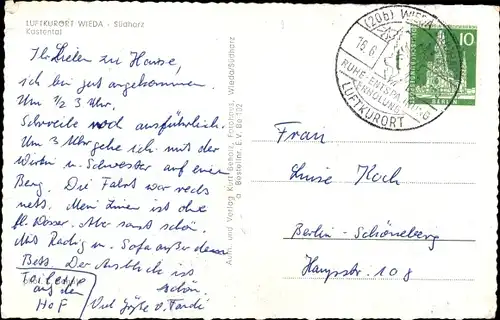 LUFTKURORT WIEDA - Südharz
Kastental
Ihr Lieben zu Hause,
ich bin gut angekommen.
Um 1/2 3 Uhr.
Schreibe noch ausführlich.
Um 3 Uhr gehe ich mit der
Wirtin u. Schwester auf einen
Berg. Die Fahrt war rech
nett. Mein Zimmer ist ohne
fl. Wasser. Aber sonst schön.
Mit Radio u. Sofa außer dem
Bett. Der Ausblick ist
schön.
auf den
Hof
Viel Grüße v.
Aufn. und Verlag Kurt Beholz, Fotohaus, Wieda/Südharz
Bestellnr. E.V. Be 102
(20b) WIEDA
RUHE - ENTSPANNUNG
ERHOLUNG
LUFTKURORT
10
BERLIN
Frau
Luise Koch
Berlin-Schöneberg
Hauptstr. 108